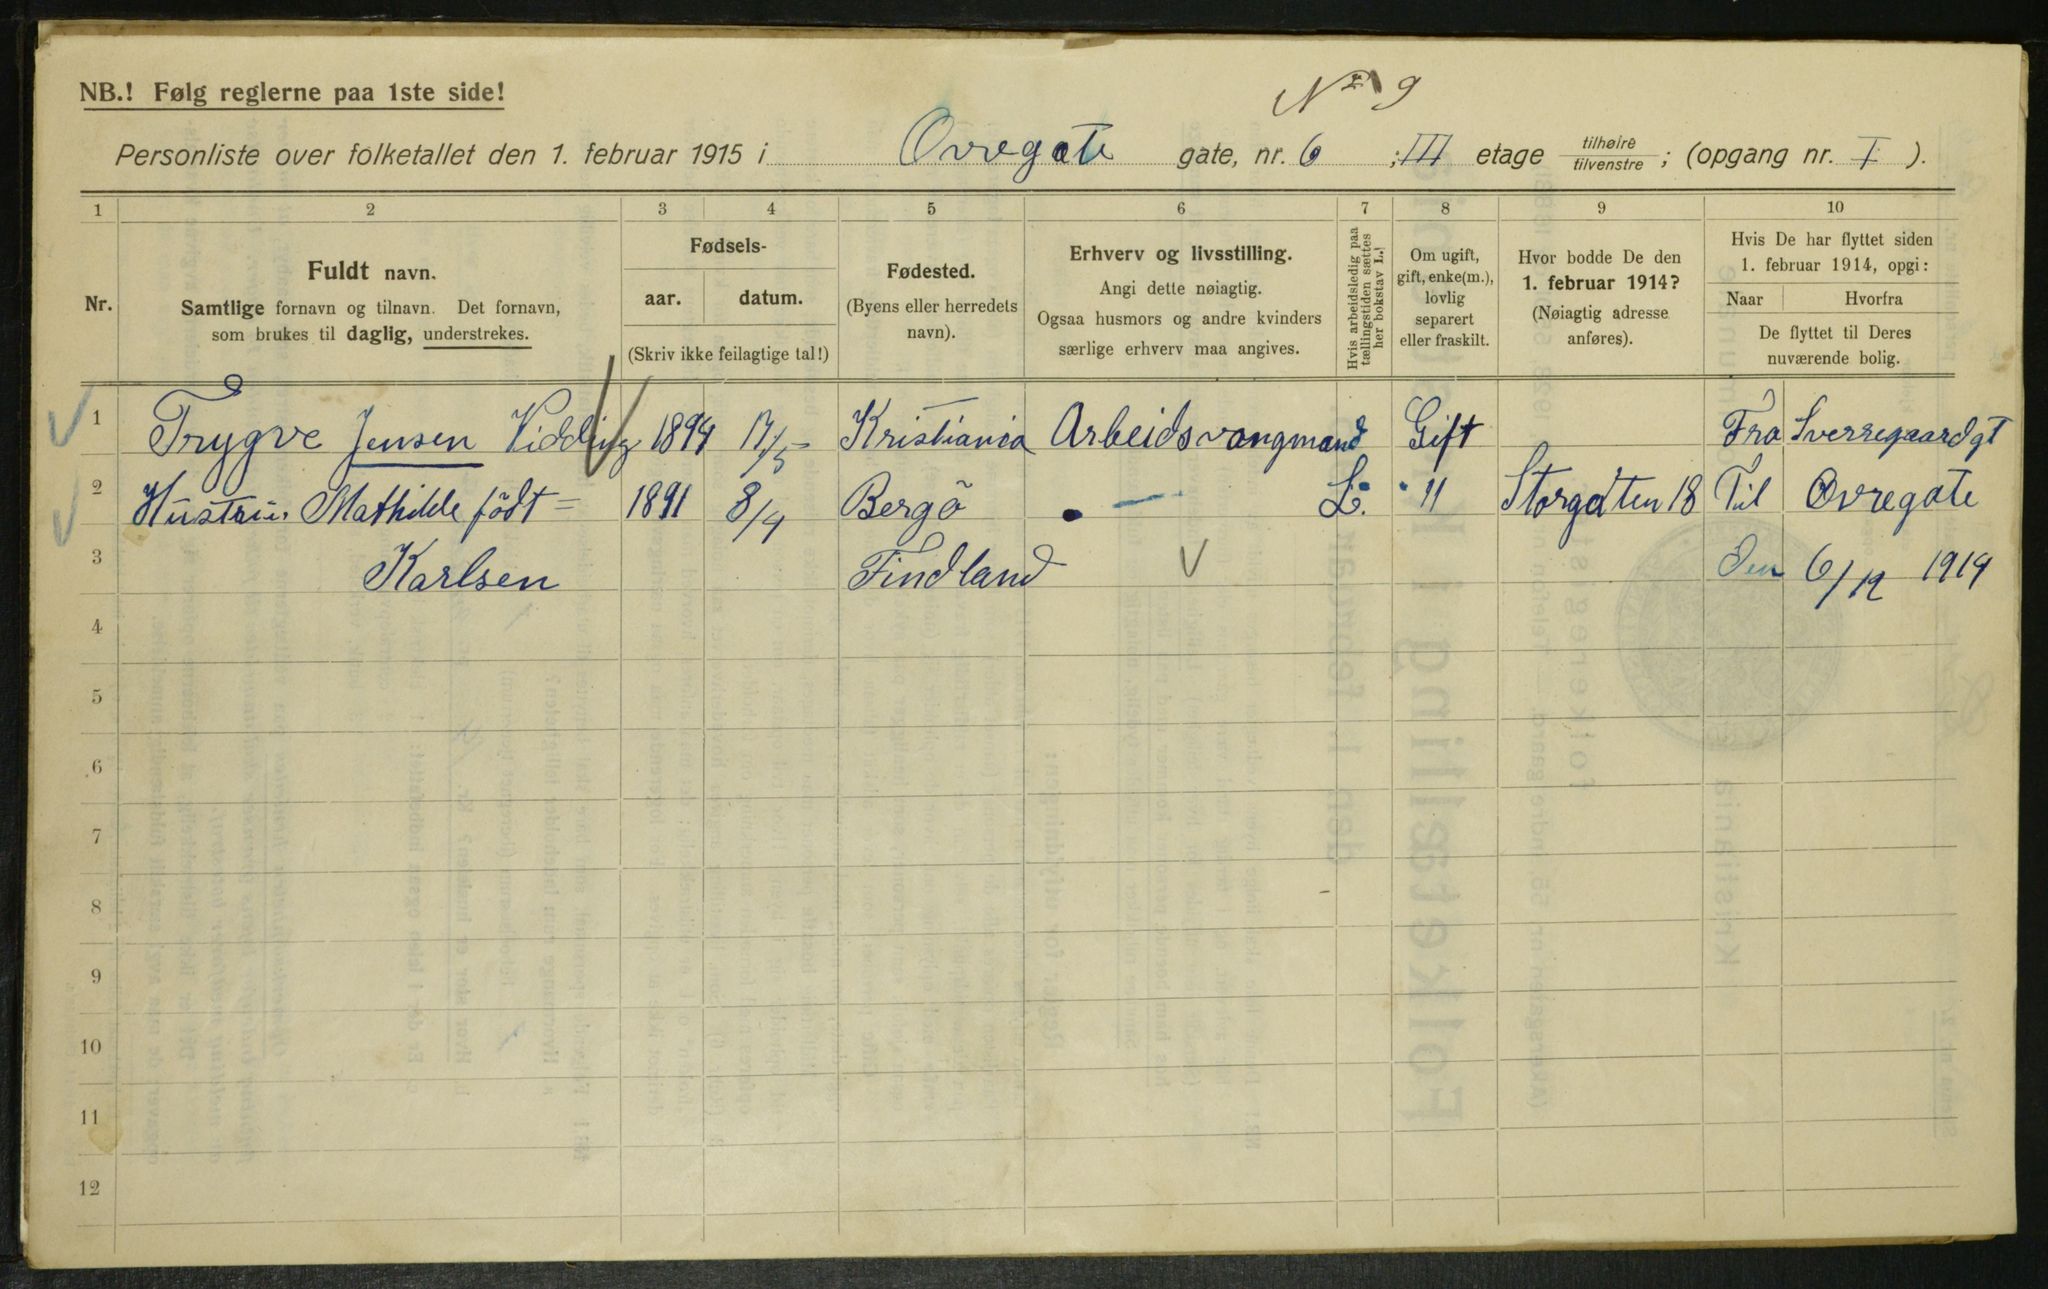 NB.! Følg reglerne paa 1ste side!
No 9
Personliste over folketallet den 1. februar 1915 i Ovregate gate, nr. 6 ; III etage tilhøire tilvenstre ; (opgang nr. I ).
1 2 3 4 5 6 7 8 9 10
Nr.
Fuldt navn.
Samtlige fornavn og tilnavn. Det fornavn,
som brukes til daglig, understrekes.
Fødsels-
aar. datum.
(Skriv ikke feilagtige tal!)
Fødested.
(Byens eller herredets
navn).
Erhverv og livsstilling.
Angi dette nøiagtig.
Ogsaa husmors og andre kvinders
særlige erhverv maa angives.
Hvis arbeidsledig paa
tællingstiden sættes
her bokstav L.!
Om ugift,
gift, enke(m.),
lovlig
separert
eller fraskilt.
Hvor bodde De den
1. februar 1914?
(Nøiagtig adresse
anføres).
Hvis De har flyttet siden
1. februar 1914, opgi:
Naar Hvorfra
De flyttet til Deres
nuværende bolig.
1 Trygve Jensen Kidding 1894 17/5 Kristiania Arbeidsvongmand Gift Fra Sverregaardgt
2 Hustru Mathilde født = 1891 8/4 Bergö - L. " Storgaten 18 Til Ovregate
3 Karlsen Findland Den 6/12 1914
4
5
6
7
8
9
10
11
12